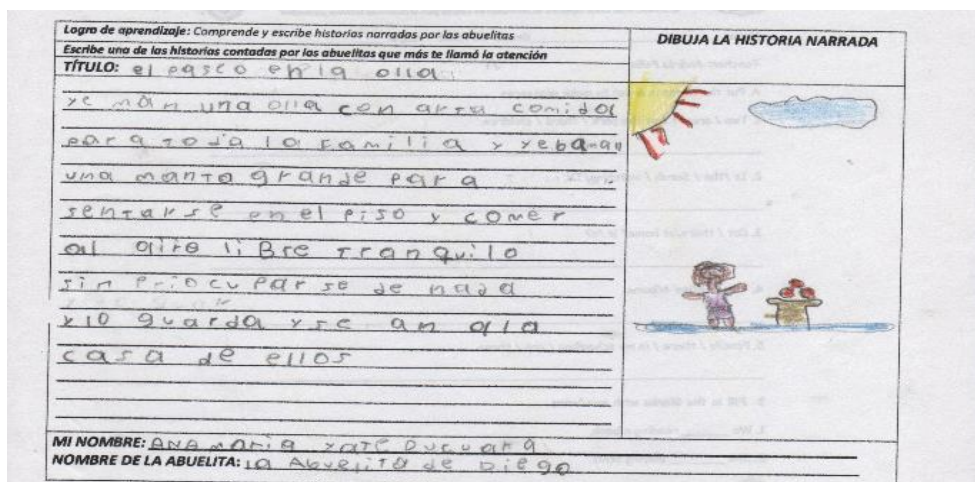 Logro de aprendizaje: Comprende y escribe historias narradas por las abuelitas
Escribe una de las historias contadas por las abuelitas que más te llamó la atención
DIBUJA LA HISTORIA NARRADA
TÍTULO: el paseo en la olla
ye nan una olla con arta comida
para toda la familia y yeban
una manta grande para
sentarse en el piso y comer
al aire libre tranquilo
sin priocuparse de nada
y lo guarda y se an a la
casa de ellos
MI NOMBRE: ANA maria yate Ducuara
NOMBRE DE LA ABUELITA: la Abuelita de Diego